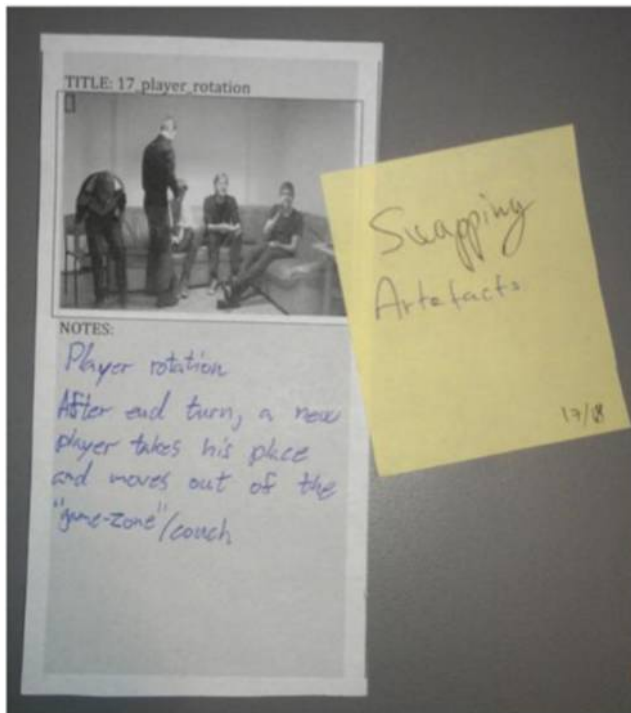 TITLE: 17_player_rotation
NOTES:
Player rotation
After end turn, a new
player takes his place
and moves out of the
"game-zone"/couch
Swapping
Artefacts
17/18